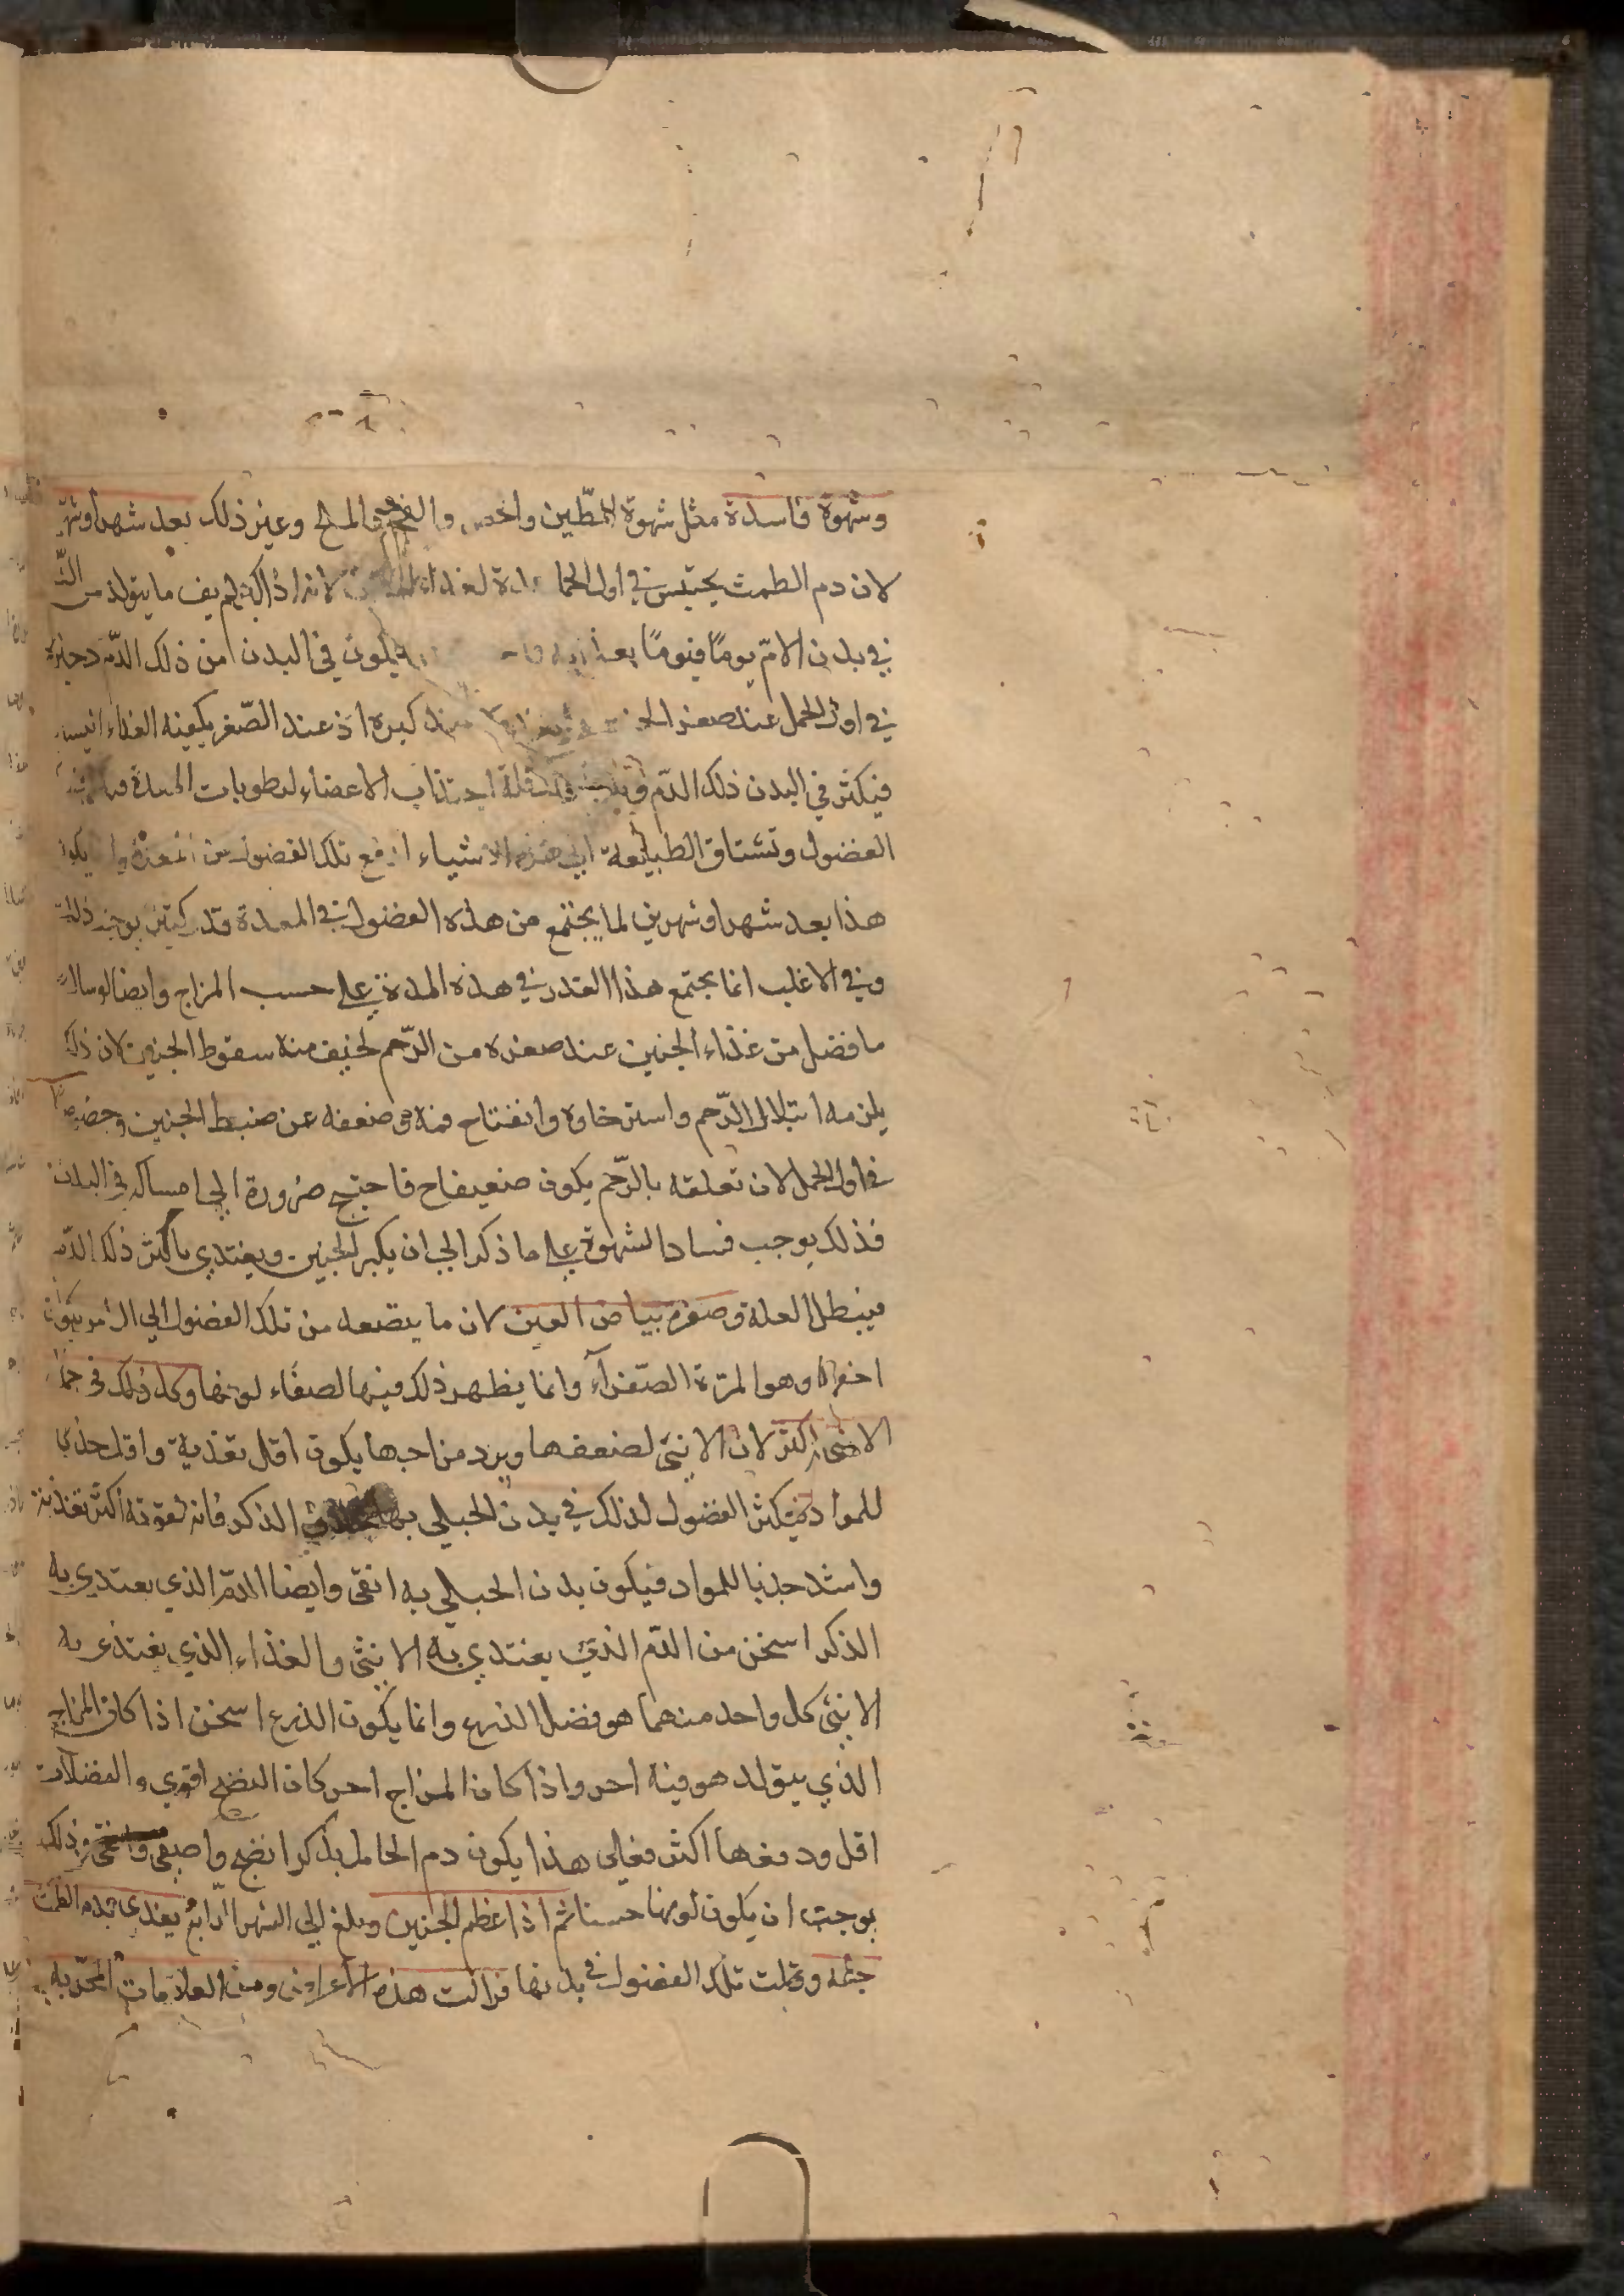 وشهوة فاسدة مثل شهوة الطين والفحم والملح وغير ذلك بعد شهر او شهر
لان دم الطمث يحتبس في اول لانه اذ ذاك لم يف ما يتولد من الدم
في بدن الام يوما فيوما يكون في البدن من ذلك الدم
في اول الحمل عند صغر كبره اذ عند الصغر يكفيه الغذاء اليسير
فيكثر في البدن ذلك الدم اجتذاب الاعضاء لرطوبات المعدة
الفضول وتشتاق الطبيعة الى هذه الاشياء تلك الفضول
هذا بعد شهر او شهرين لما يجتمع من هذه الفضول في المعدة قدر كثير يوجب ذلك
وفي الاغلب انما يجتمع هذا القدر في هذه المدة على حسب المزاج وايضا لو سال
ما فضل من غذاء الجنين عند صغره من الرحم لخيف منه سقوط الجنين لان ذلك
يلزمه ابتلال الرحم واسترخاوه وانفتاح فمه وضعفه عن ضبط الجنين وخصوصا
في اول الحمل لان تعلقه بالرحم يكون ضعيفا ح فاحتيج ضرورة الى امساكه في البدن
فذلك يوجب فساد الشهوة على ما ذكر الى ان يكبر الجنين ويغتدي باكثر ذلك الدم
فيبطل العلة وصفرة بياض العين لان ما يتصعد من تلك الفضول الى الراس يكون
اخفها وهو المرة الصفرآء وانما يظهر ذلك فيها لصفاء لونها وكل ذلك في حمل
الانثى اكثر لان الانثى لضعفها وبرد مزاجها يكون اقل تغذية واقل جذبا
للمواد فيكثر الفضول لذلك في بدن الحبلى بها بخلاف الذكر فانه لقوته اكثر تغذية
واشد جذبا للمواد فيكون بدن الحبلى به انقى وايضا الدم الذي يعتدي به
الذكر اسخن من الدم الذي يغتدي به الانثى والغذاء الذي يغتذي به
الانثى كل واحد منهما هو فضل الذرع وانما يكون الذرع اسخن اذا كان المزاج
الذي يتولد هو فيه احر واذا كان المزاج احر كان النضج اقوى والفضلات
اقل ودفعها اكثر فعلى هذا يكون دم الحامل بذكر انضج واصفى وانقى وذلك
يوجب ان يكون لونها حسنا ثم اذا عظم الجنين وبلغ الى الشهر الرابع يغتدي بدم الطمث
جله وقلت تلك الفضول في بدنها فزالت هذه الاعراض ومن العلامات المجربة